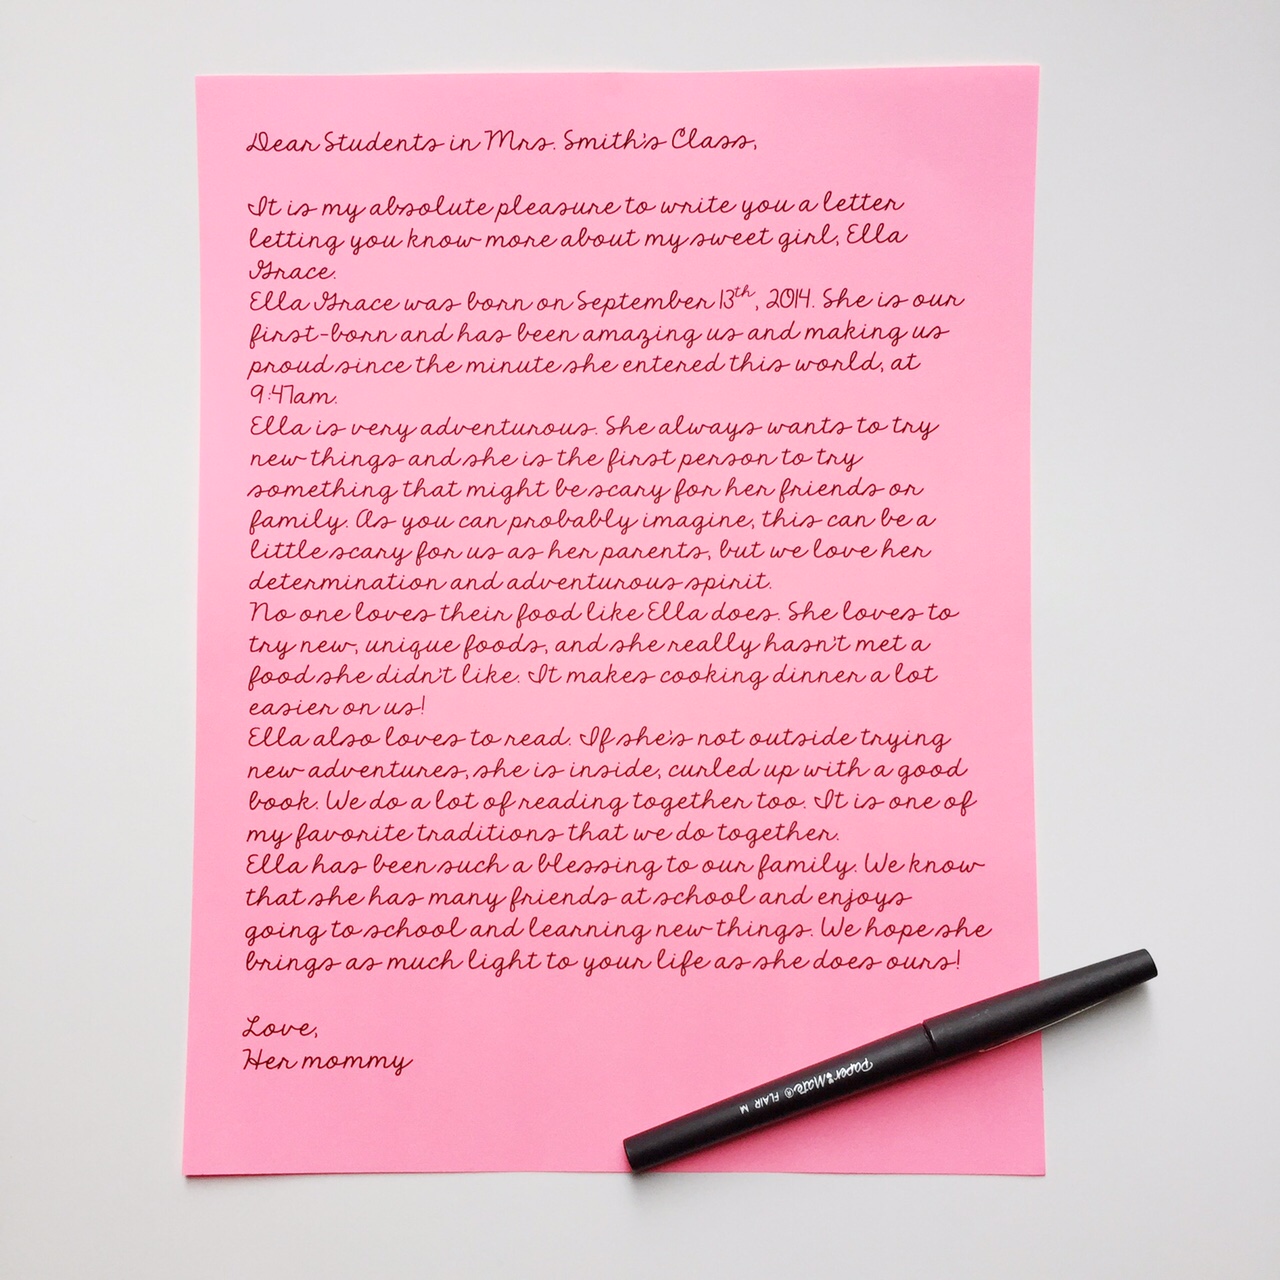 Dear Students in Mrs. Smith's Class,
It is my absolute pleasure to write you a letter
letting you know more about my sweet girl, Ella
Grace.
Ella Grace was born on September 13th, 2014. She is our
first-born and has been amazing us and making us
proud since the minute she entered this world, at
9:47am.
Ella is very adventurous. She always wants to try
new things and she is the first person to try
something that might be scary for her friends or
family. As you can probably imagine, this can be a
little scary for us as her parents, but we love her
determination and adventurous spirit.
No one loves their food like Ella does. She loves to
try new, unique foods, and she really hasn't met a
food she didn't like. It makes cooking dinner a lot
easier on us!
Ella also loves to read. If she's not outside trying
new adventures, she is inside, curled up with a good
book. We do a lot of reading together too. It is one of
my favorite traditions that we do together.
Ella has been such a blessing to our family. We know
that she has many friends at school and enjoys
going to school and learning new things. We hope she
brings as much light to your life as she does ours!
Love,
Her mommy
Paper Mate ® FLAIR M